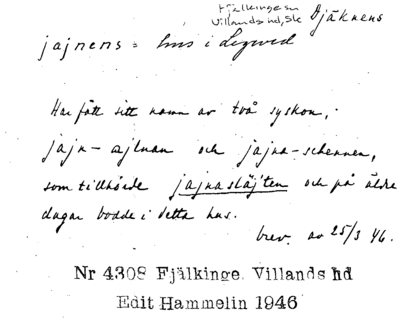 Fjälkinge sn
Villands hd, Sk Djäknens
jajnens = hus i Legeved
Har fått sitt namn av två syskon,
jajn- och jajna-schennen,
som tillhörde jajnasläjten och på äldre
dagar bodde i detta hus.
brev. av 25/3 46.
Nr 4308 Fjälkinge Villands hd
Edit Hammelin 1946